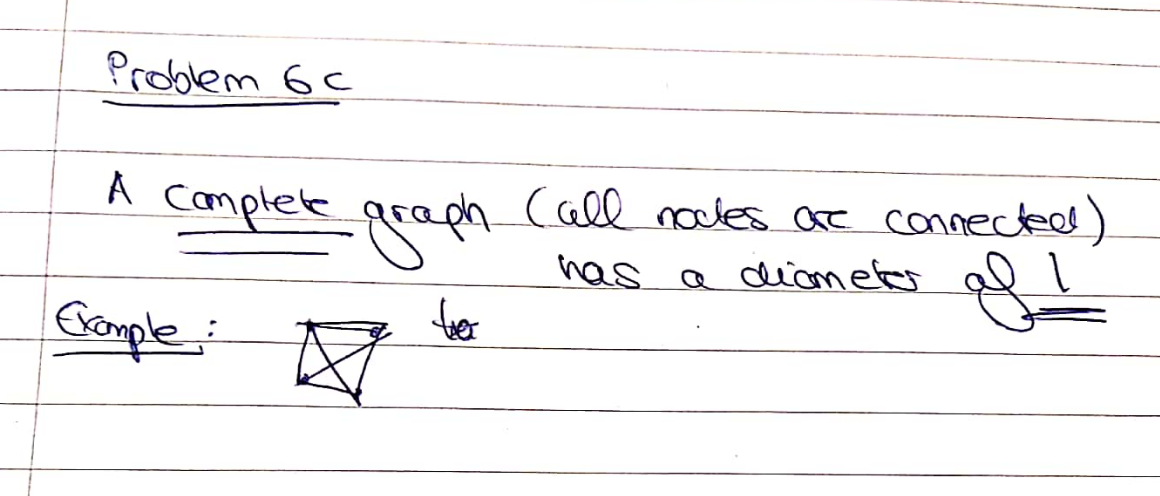 Problem 6c
A complete graph (all nodes are connected)
has a diameter of 1
Example: